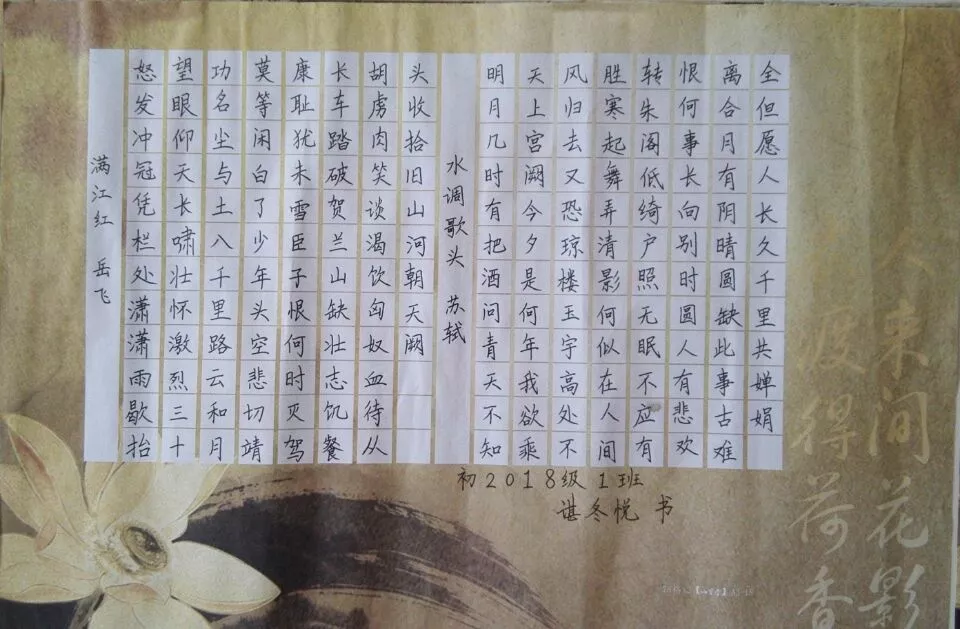 满江红 岳飞
怒发冲冠凭栏处潇潇雨歇抬
望眼仰天长啸壮怀激烈三十
功名尘与土八千里路云和月
莫等闲白了少年头空悲切靖
康耻犹未雪臣子恨何时灭驾
长车踏破贺兰山缺壮志饥餐
胡虏肉笑谈渴饮匈奴血待从
头收拾旧山河朝天阙
水调歌头 苏轼
明月几时有把酒问青天不知
天上宫阙今夕是何年我欲乘
风归去又恐琼楼玉宇高处不
胜寒起舞弄清影何似在人间
转朱阁低绮户照无眠不应有
恨何事长向别时圆人有悲欢
离合月有阴晴圆缺此事古难
全但愿人长久千里共婵娟
初2018级1班
谌冬悦 书
来间花影
得荷香